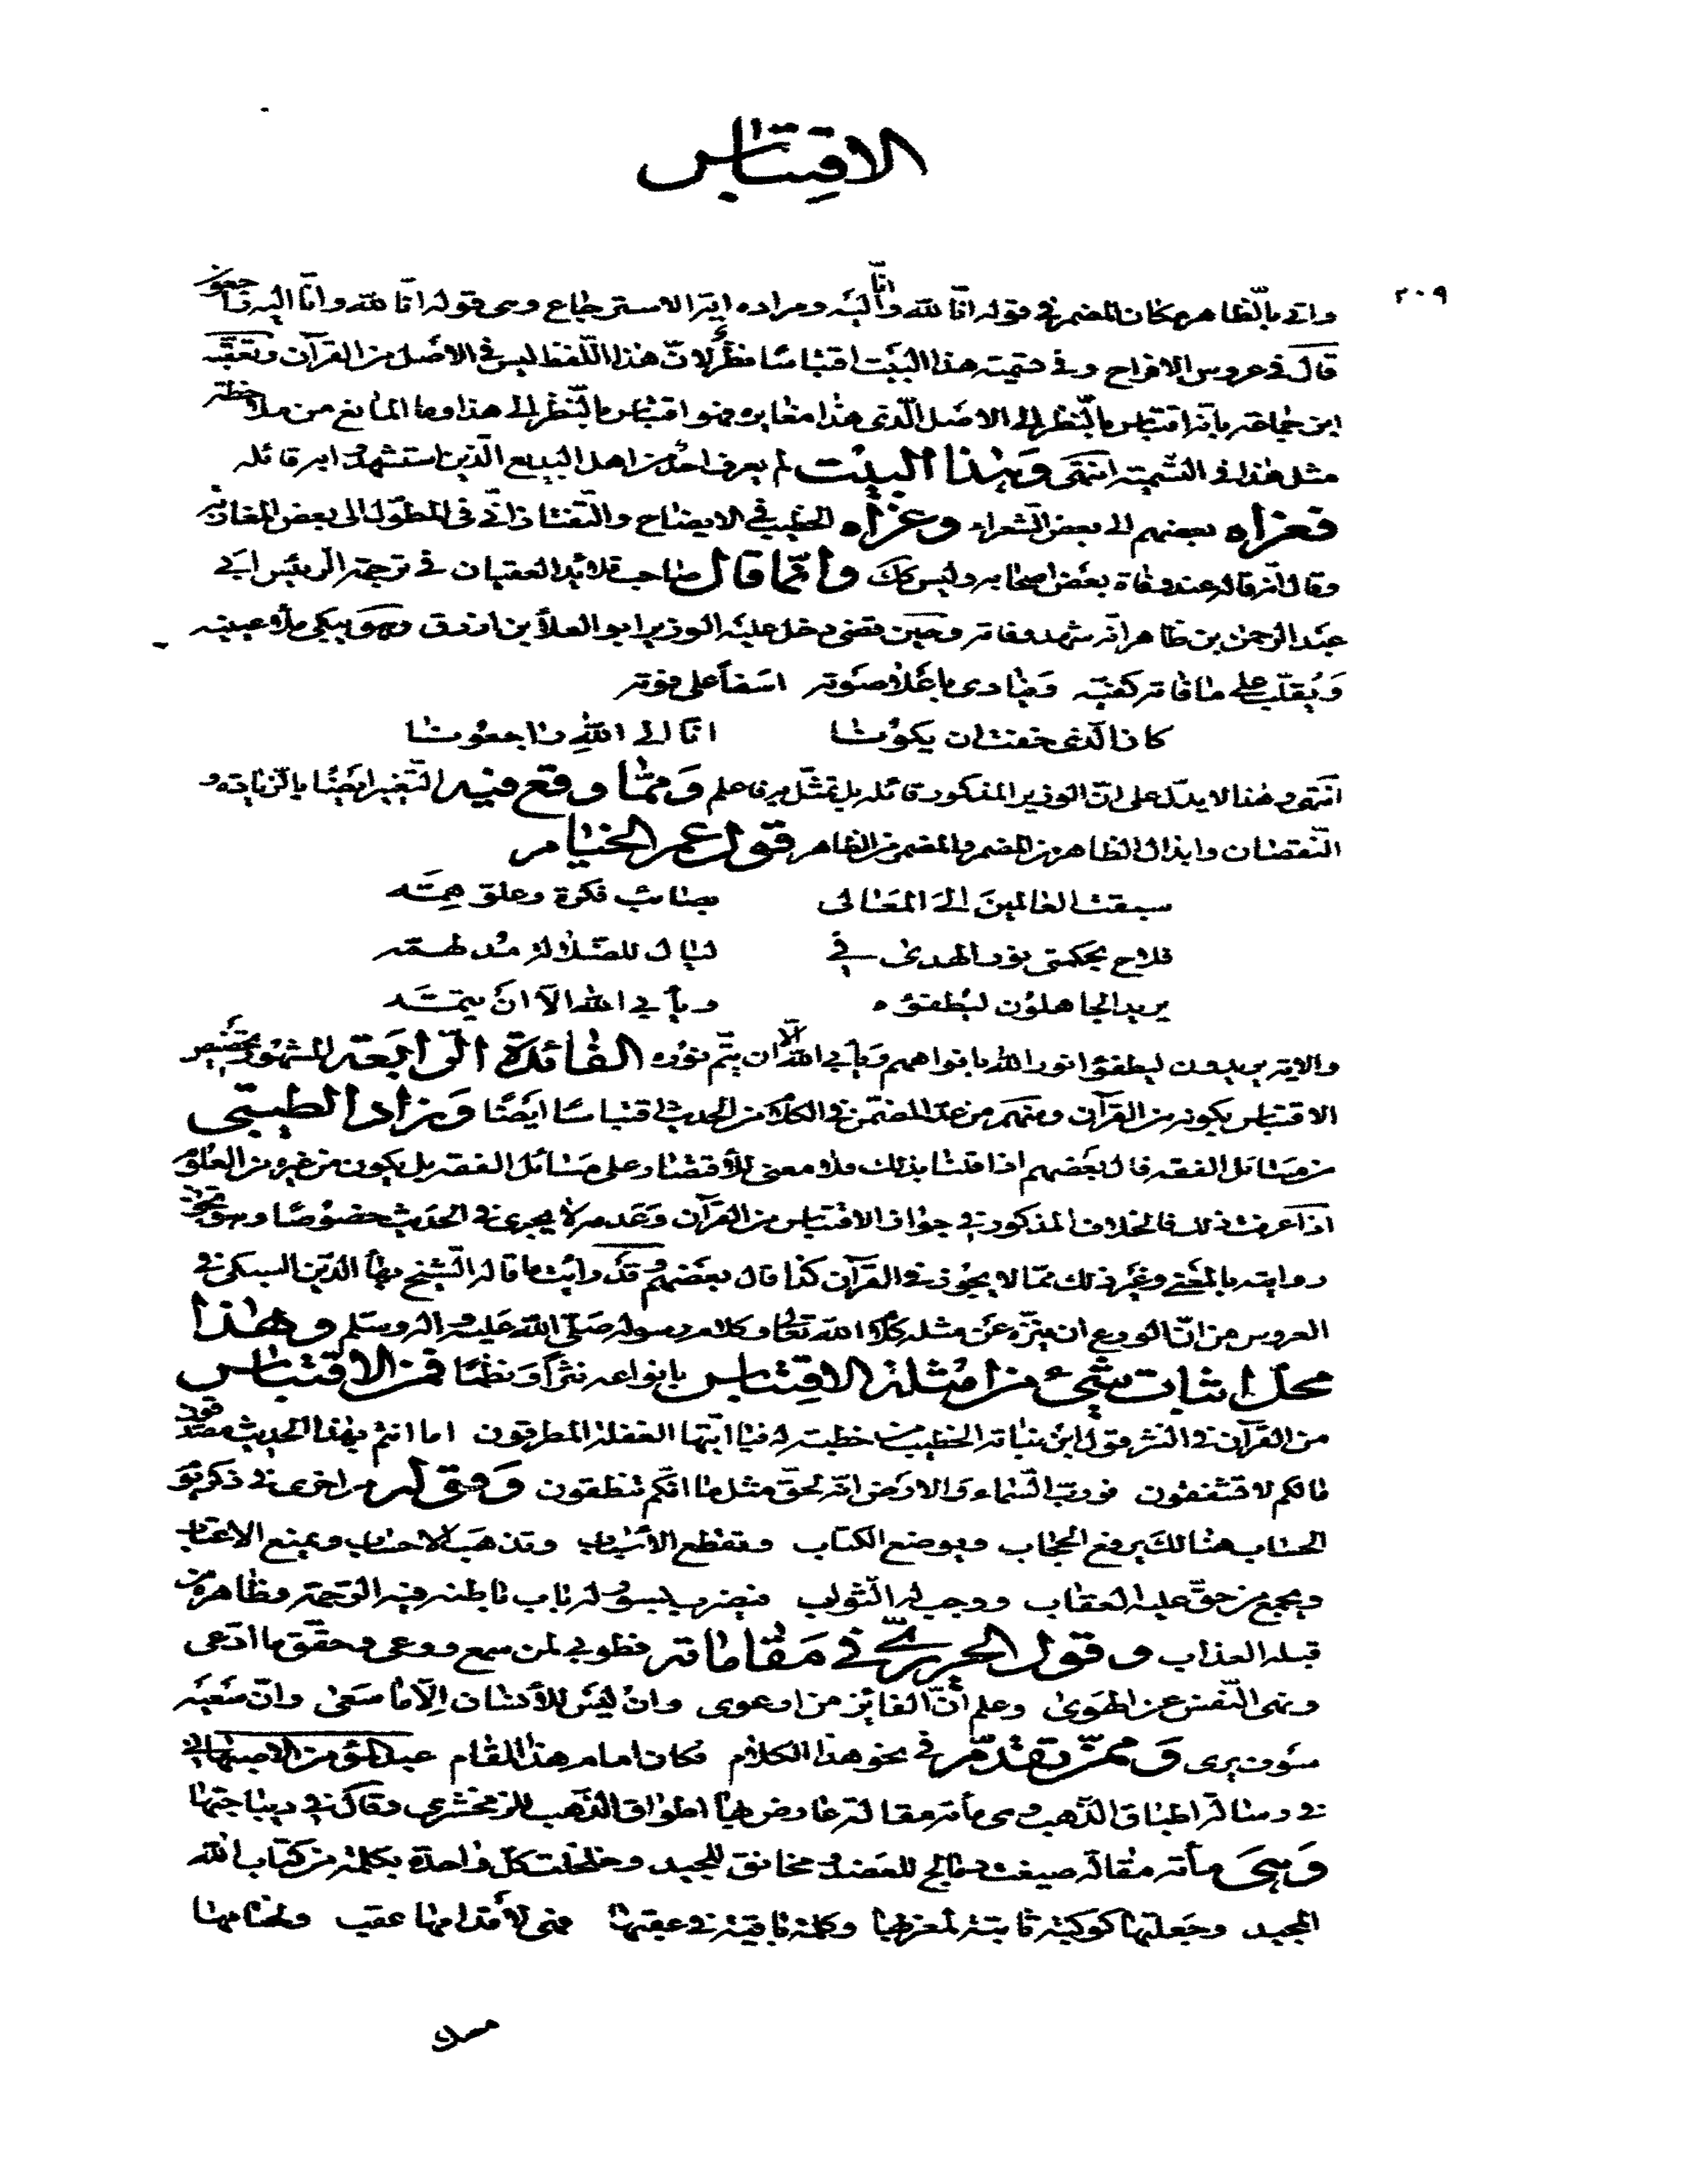 الاقتباس
٢٠٩
واتى بالظاهر مكان المضمر في قوله انا لله وانا اليه ومراده آية الاسترجاع وهى قوله انا لله وانا اليه راجعون
قال في عروس الافراح وفى تسميته هذا البيت اقتباسًا نظر لان هذا اللفظ ليس في الاصل من القرآن وتعقبه
ابن جماعة بانه اقتباس بالنظر الى الاصل الذى هذا مغايره فهو اقتباس بالنظر الى هذا وما المانع من ملاحظة
مثل هذا في التسمية انتهى وهذا البيت لم يعرف احد من اهل البديع الذين استشهدوا به قائله
فعزاه بعضهم الى بعض الشعراء وعزاه الخطيب في الايضاح والتفتازاني في المطول الى بعض المغاربة
وقال انه قاله عند وفاة بعض اصحابه وليس كك وانما قال صاحب قلائد العقيان في ترجمة الرئيس ابي
عبد الرحمن بن طاهر انه شهد وفاته وحين قضى دخل عليه الوزير ابو العلا بن ازرق وهو يبكى ملأ عينيه
ويقلب على ما فاته كفيه وينادى باعلا صوته اسفا على فوته
كان الذى خفت ان يكونا انا الى الله راجعونا
انتهى وهذا لا يدل على ان الوزير المذكور قائله بل تمثل به فاعلم ومما وقع فيه التغيير ايضًا بالزيادة و
النقصان وابدال الظاهر من المضمر والمضمر من الظاهر قول عمر الخيام
سبقت العالمين الى المعالى بصائب فكرة وعلو همه
فلاح بحكمتى نور الهدى في ليال للضلالة مدلهمه
يريد الجاهلون ليطفؤه ويأبى الله الا ان يتمه
والاية يريدون ليطفؤا نور الله بافواههم ويأبى الله الا ان يتم نوره الفائدة الرابعة المشهور تخصيص
الاقتباس بكونه من القرآن ومنهم من عد المضمن في الكلام من الحديث اقتباسا ايضًا وزاد الطيبى
من مسائل الفقه قال بعضهم اذا قلنا بذلك فلا معنى للأقتصار على مسائل الفقه بل يكون من غيره من العلوم
اذا عرفت ذلك فالخلاف المذكور في جواز الاقتباس من القرآن وعدمه لا يجرى في الحديث خصوصًا وهم جوزوا
روايته بالمعنى وغير ذلك مما لا يجوز في القرآن كذا قال بعضهم وقد رأيت ما قاله الشيخ بهاء الدين السبكى في
العروس من ان الورع ان ينزه عن مثله كلام الله تعالى وكلام رسوله صلى الله عليه واله وسلم وهذا
محل اثبات شيء من امثلة الاقتباس بانواعه نثرًا ونظمًا فمن الاقتباس
من القرآن في النثر قول ابن نباتة الخطيب في خطبة له فيا ايها الغفلة المطرقون اما انتم بهذا الحديث مصدقون
مالكم لا تشفقون فورب السماء والارض انه لحق مثل ما انكم تنطقون وقوله من اخرى في ذكر يوم
الحساب هنالك يرفع الحجاب ويوضع الكتاب وتقطع الأسباب وتذهب الاحساب ويمنع الاعتاب
ويجمع من حق عليه العقاب ووجب له الثواب فيضرب بينهم بسور له باب باطنه فيه الرحمة وظاهره من
قبله العذاب وقول الحريرى في مقاماته فطوبى لمن سمع ووعى وحقق ما ادعى
ونهى النفس عن الهوى وعلم أن الفائز من ارعوى وان ليس للأنسان الا ما سعى وان سعيه
سوف يرى وممن تقدم في نحو هذا الكلام فكان امام هذا المقام عبد المؤمن الاصبهانى
في رسالة اطباق الذهب وهى مأة مقالة عارض بها اطواق الذهب للزمخشرى وقال في ديباجتها
وهى مأة مقالة صيغت دمالج للعضد مخانق للجيد وخلخلت كل واحدة بكلمة من كتاب الله
المجيد وجعلتها كوكبة ثابتة لمغربها وكلمة باقية في عقبها فهى لأقدامها عقب ولختامها